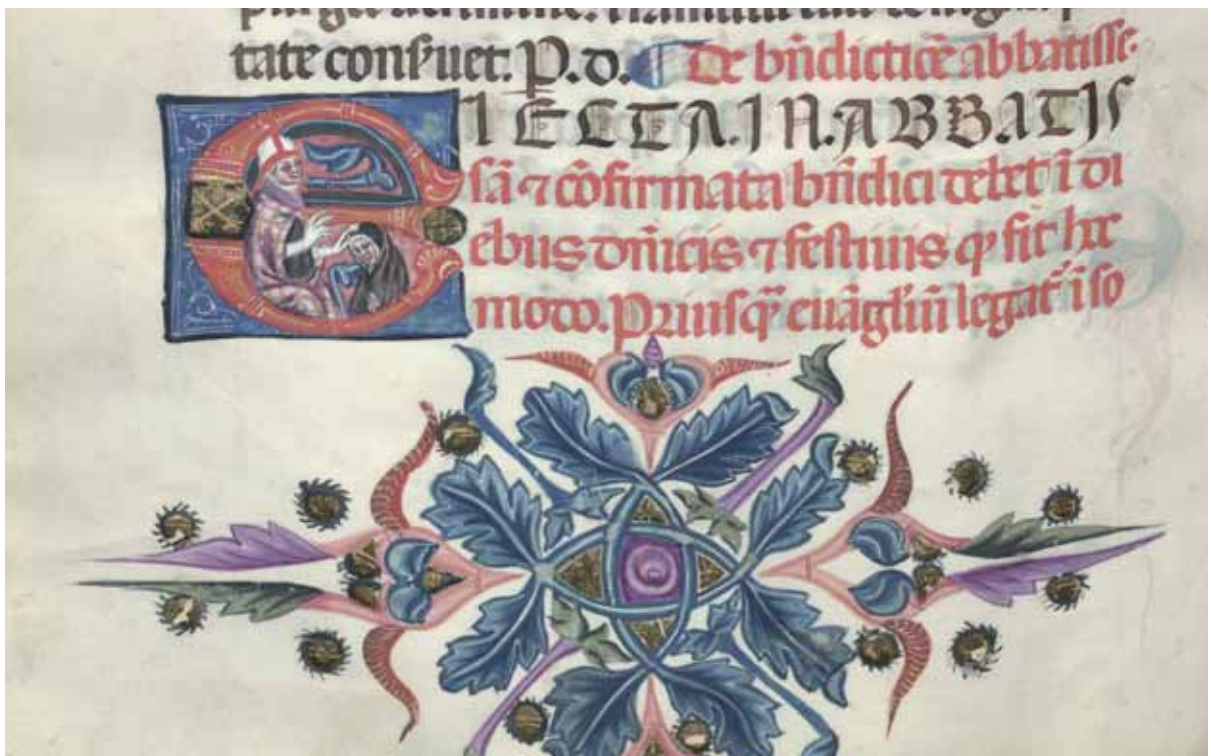 tate consͬuet. P. d. ¶ De bn̄dictiōe abbatisse.
E IECTA. IN. ABBATIS
sā ⁊ cōfirmata bn̄dici debet ī di
ebus dn̄icis ⁊ festiuis qͥ fit hͦc
modo. Priusqͫ euāgl̄iū legat͛ ī so